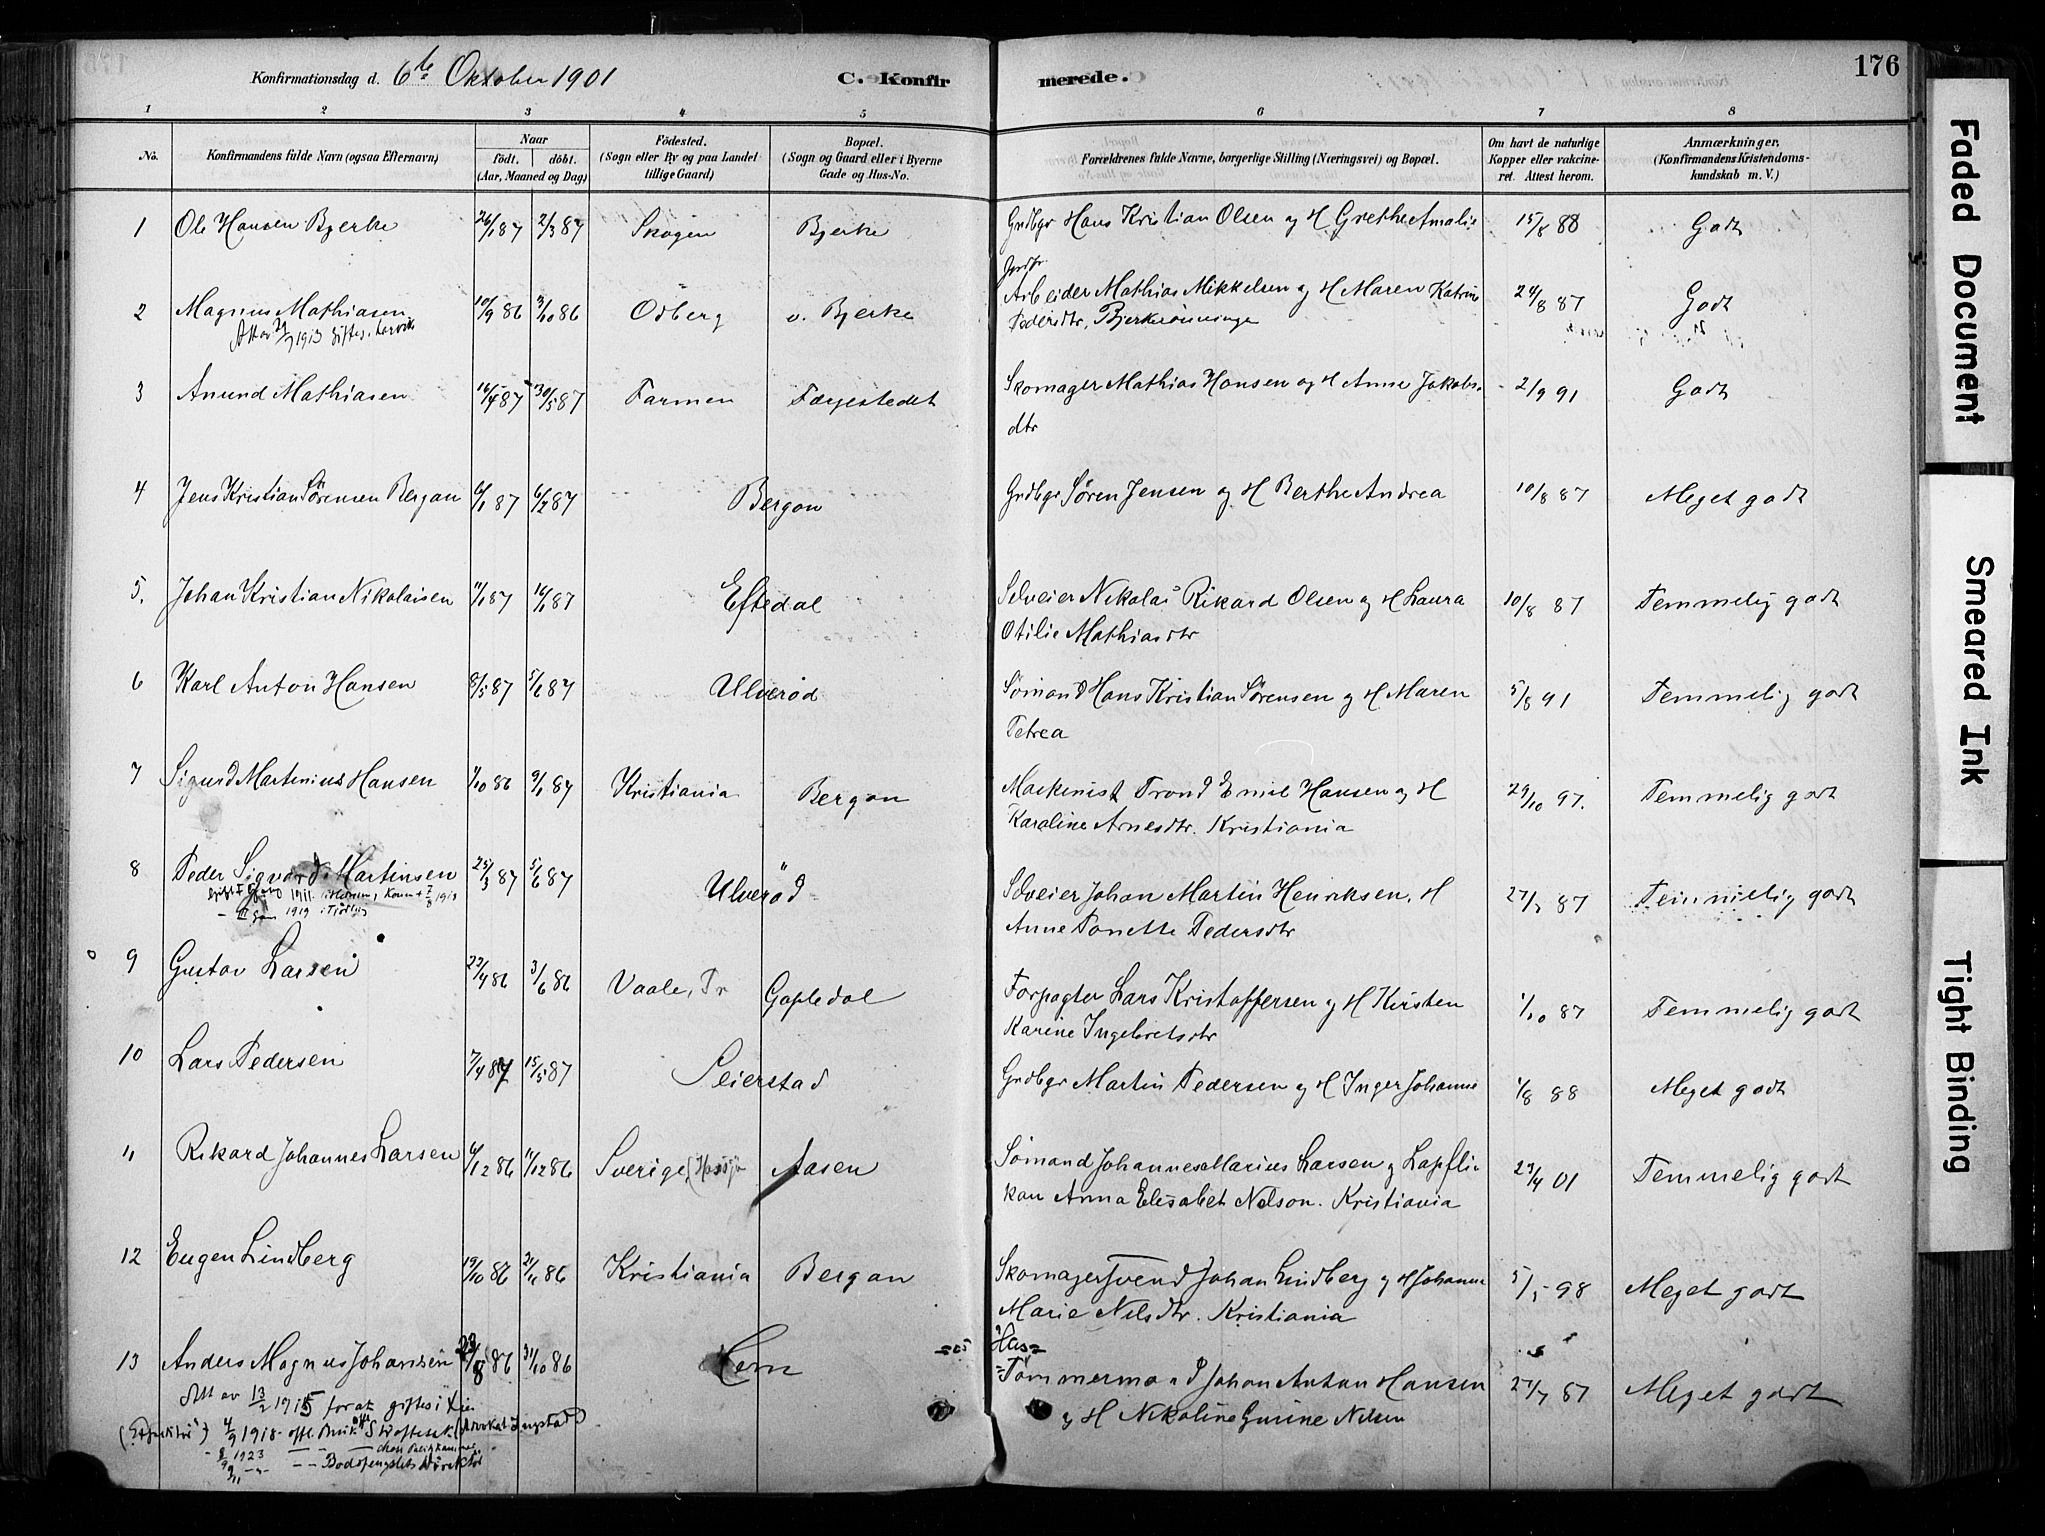 176
Konfirmationsdag d. 6te Oktober 1901 C. Konfirmerede.
1 2 3 4 5 6 7 8
No. Konfirmandens fulde Navn (ogsaa Efternavn) Naar født. døbt. (Aar, Maaned og Dag) Fødested. (Sogn eller By og paa Landet tillige Gaard) Bopæl. (Sogn og Gaard eller i Byerne Gade og Hus-No. Forældrenes fulde Navne, borgerlige Stilling (Næringsvei) og Bopæl. Om havt de naturlige Kopper eller vakcineret. Attest herom. Anmærkninger. (Konfirmandens Kristendomskundskab m. V.)
1 Ole Hansen Bjerke 26/1 87 2/3 87 Skogen Bjerke Grdbgr Hans Kristian Olsen og H Grethe Amalie 15/8 88 Godt
2 Magnus Mathiasen 10/9 86 3/10 86 Ödberg v. Bjerke Arbeider Mathias Mikkelsen og H Maren Katrine 24/8 87 Godt
1913 giftes i Larvik Pedersdtr,
3 Amund Mathiasen 16/4 87 30/5 87 Farmen Færgestedet Skomager Mathias Hansen og H Anne Jakobs- 2/9 91 Godt
dtr
4 Jens Kristian Sørensen Bergan 6/1 87 6/2 87 Bergan Grdbgr Søren Jensen og H Berthe Andrea 10/8 87 Meget godt
5. Johan Kristian Nikolaisen 11/1 87 87 Eftedal Selveier Nikolai Rikard Olsen og H Laura 10/8 87 Temmelig godt
Otilie Mathiasdtr
6 Karl Anton Hansen 8/5 87 5/6 87 Ulverød Sømand Hans Kristian Sørensen og H Maren 5/8 91 Temmelig godt
Petrea
7 Sigurd Martinius Hansen 1/10 86 9/1 87 Kristiania Bergan Maskinist Trond Emil Hansen og H 29/10 97. Temmelig godt
Karoline Arnesdtr. Kristiania
8 Peder Sigvard Martinsen 25/3 87 5/6 87 Ulverød Selveier Johan Martin Henriksen, H 27/7 87 Temmelig godt
1911 1919 i Tjølling Anne Tonette Pedersdtr
9 Gustav Larsen 23/4 86 3/6 86 Vaale, Tr Gopledal Forpagter Lars Kristoffersen og H Kirsten 1/10 87 Temmelig godt
Karine Ingebretsdtr
10 Lars Pedersen 7/4 87 15/5 87 Seierstad Grdbgr Martin Pedersen og H Inger Johanne 1/8 88 Meget godt
11 Rikard Johannes Larsen 6/12 86 11/12 86 Sverige Aasen Sømand Johannes Marius Larsen og Lapfli- 29/4 01 Temmelig godt
kan Anna Elisabet Nelson. Kristiania
12 Eugen Lindberg 19/10 86 21/11 86 Kristiania Bergan Skomagersvend Johan Lindberg og H Johanne 5/5 98 Meget godt
Marie Nilsdtr. Kristiania
13 Anders Magnus Johansen 23/8 86 31/10 86 Hem Tømmermand Johan Anton Hansen 27/7 87 Meget godt
Att av 13/2 1915 for at giftes i og H Nikoline Gurine Nilsen
4/9 1918
1923
Faded Document
Smeared Ink
Tight Binding